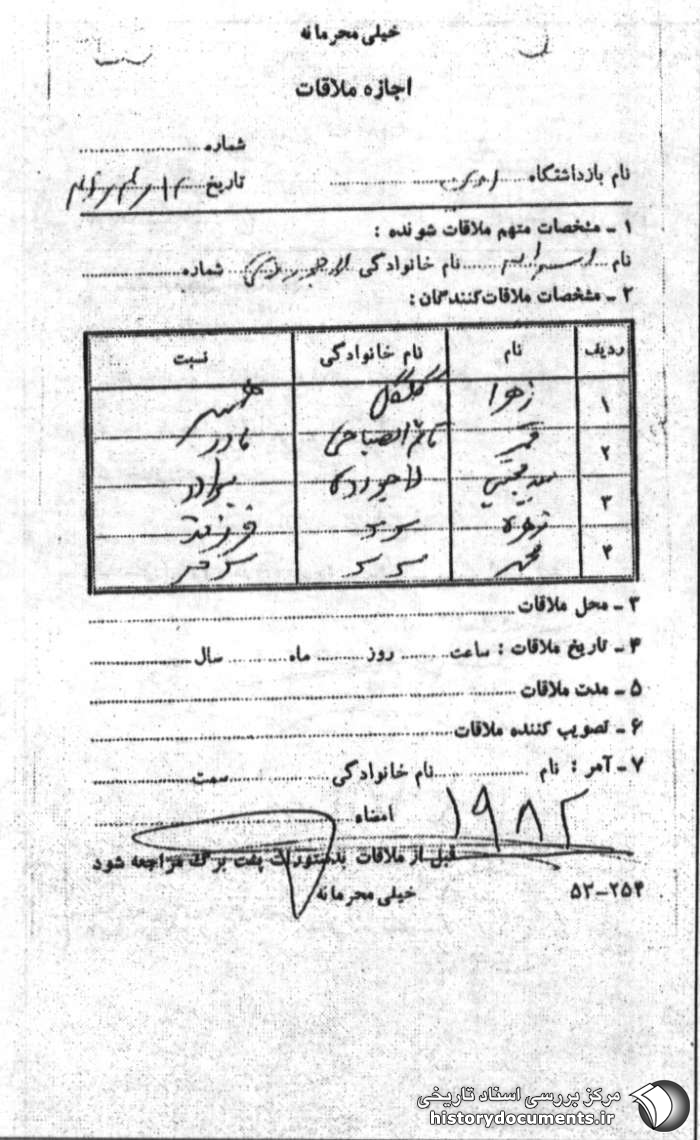 خیلی محرمانه
اجازه ملاقات
شماره
نام بازداشتگاه اوین تاریخ
۱ ـ مشخصات متهم ملاقات شونده :
نام اسداله نام خانوادگی لاجوردی شماره
۲ ـ مشخصات ملاقات‌کنندگان :
ردیف نام نام خانوادگی نسبت
۱ زهرا گلگل همسر
۲ مادر
۳ سید مجتبی لاجوردی برادر
زهره فرزند
۴ محمد
۳ ـ محل ملاقات
۴ ـ تاریخ ملاقات : ساعت روز ماه سال
۵ ـ مدت ملاقات
۶ ـ تصویب کننده ملاقات
۷ ـ آمر : نام نام خانوادگی سمت
امضاء
۱۹۸۲
قبل از ملاقات بدستورات پشت برگ مراجعه شود
۵۳-۲۵۴ خیلی محرمانه
مرکز بررسی اسناد تاریخی
historydocuments.ir